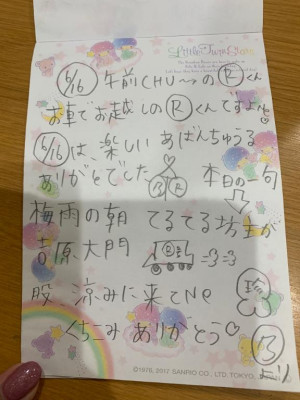 Little Twin Stars
6/16 午前CHU〜の Rくん
お車でお越しの Rくんですよね
6/16 は、楽しい あばんちゅうる
ありがとでした
B R
本日の一句
梅雨の朝 てるてる坊主が
吉原大門
股、涼みに来てNe
くちこみ ありがとう♡
Bより
©1976, 2017 SANRIO CO., LTD. TOKYO, JAPAN